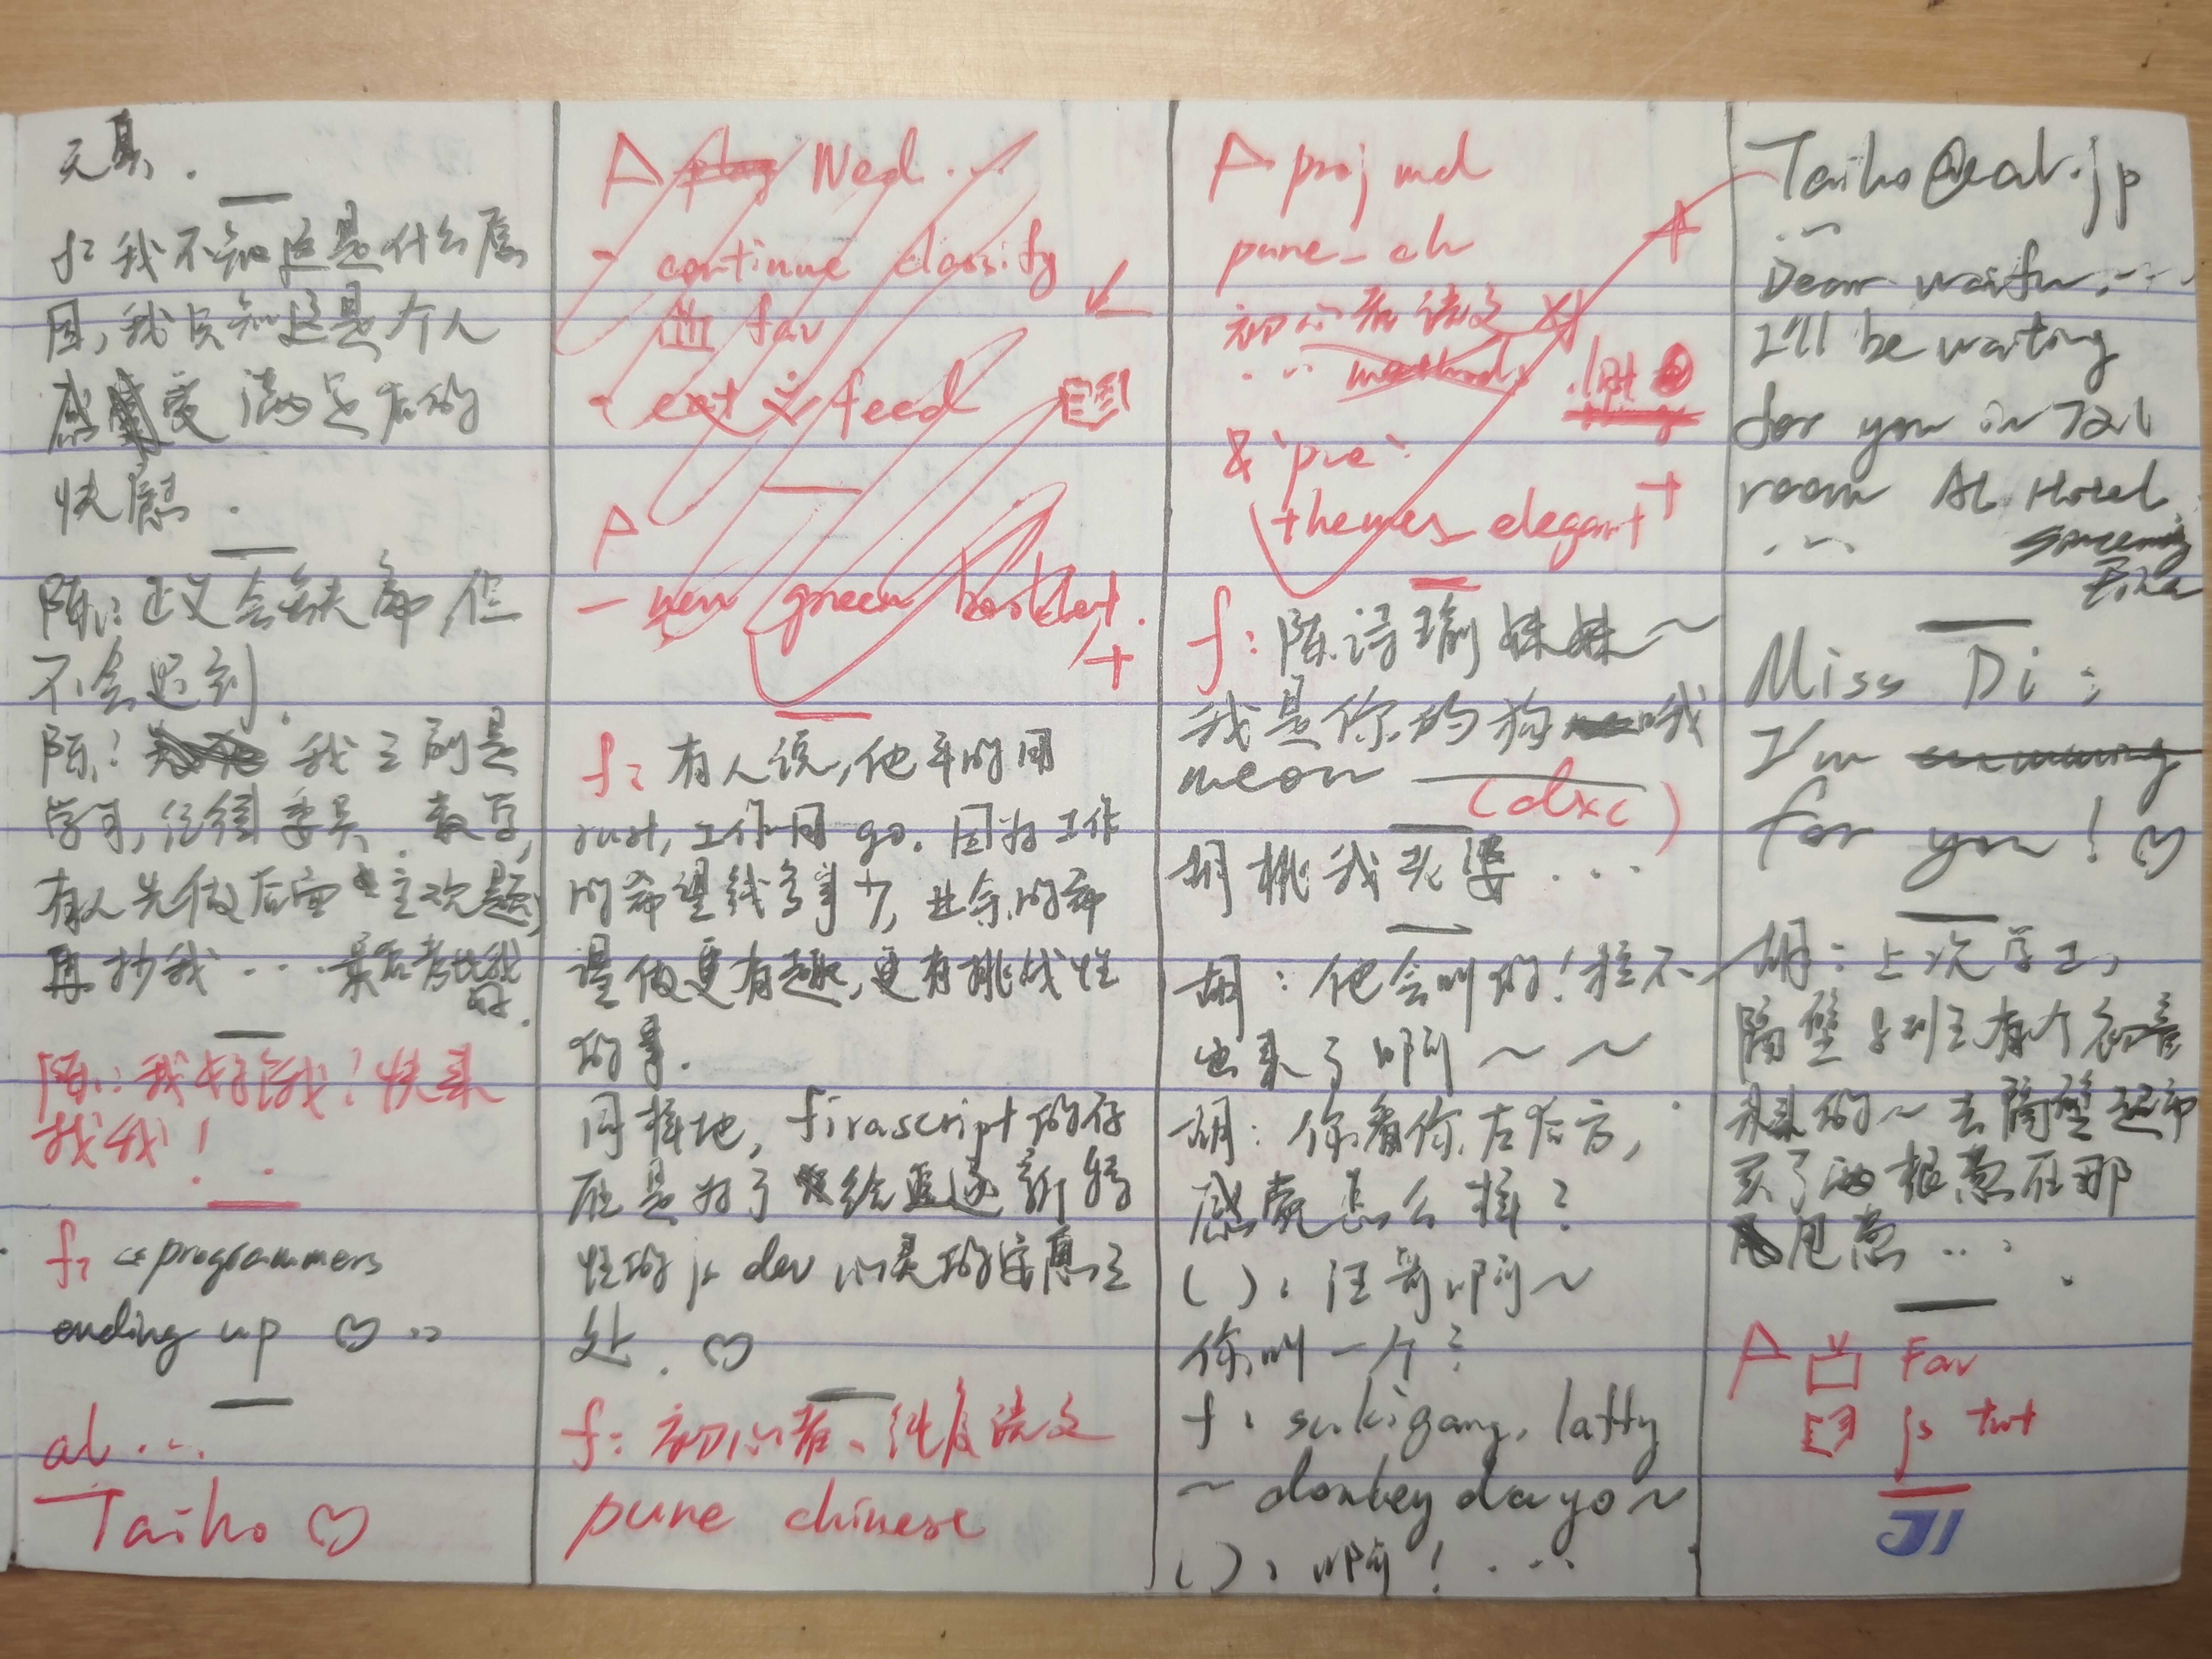 天真.
f: 我不知这是什么原
因,我只知这是个人
感受满足后的
快慰.
陈:正义会缺席但
不会迟到.
陈: 我立刻是
有人先做后面
再抄我...最后考比我
好.
陈:我好饿!快来
找我!
f: programmers
ending up ♡
al...
Taiho ♡
Wed...
- continue classify
fav
- ext feed
- new green booklet.
+
f: 有人说,他平时用
rust,工作用go.因为工作
的希望钱多事少,业余的希
望做更有趣,更有挑战性
的事.
同样地, firascript的存
在是为了给追逐新特
性的js dev 心灵的
处. ♡
f: 初心者、纯度语文
pure chinese
proj md
pure_ch
初心者语文
& 'pre'
themes_elegant +
f: 陈诗瑜妹妹~
我是你的狗哦
meow
(dxc)
胡桃我老婆...
胡:他会叫的!拦不
也来了啊~~
胡:你看你左右方,
感觉怎么样?
( ): 汪哥啊~
你叫一个?
f: sukigang, latty
~ donkey dayo~
( ): 啊! ...
Taiho@eal.jp
Dear waifu, ...
I'll be waiting
for you in 721
room AL Hotel.
Miss Di:
I'm
for you! ♡
胡:上次学工,
隔壁班有个
去隔壁超市
买了两根葱在那
甩葱...
Fav
js twt